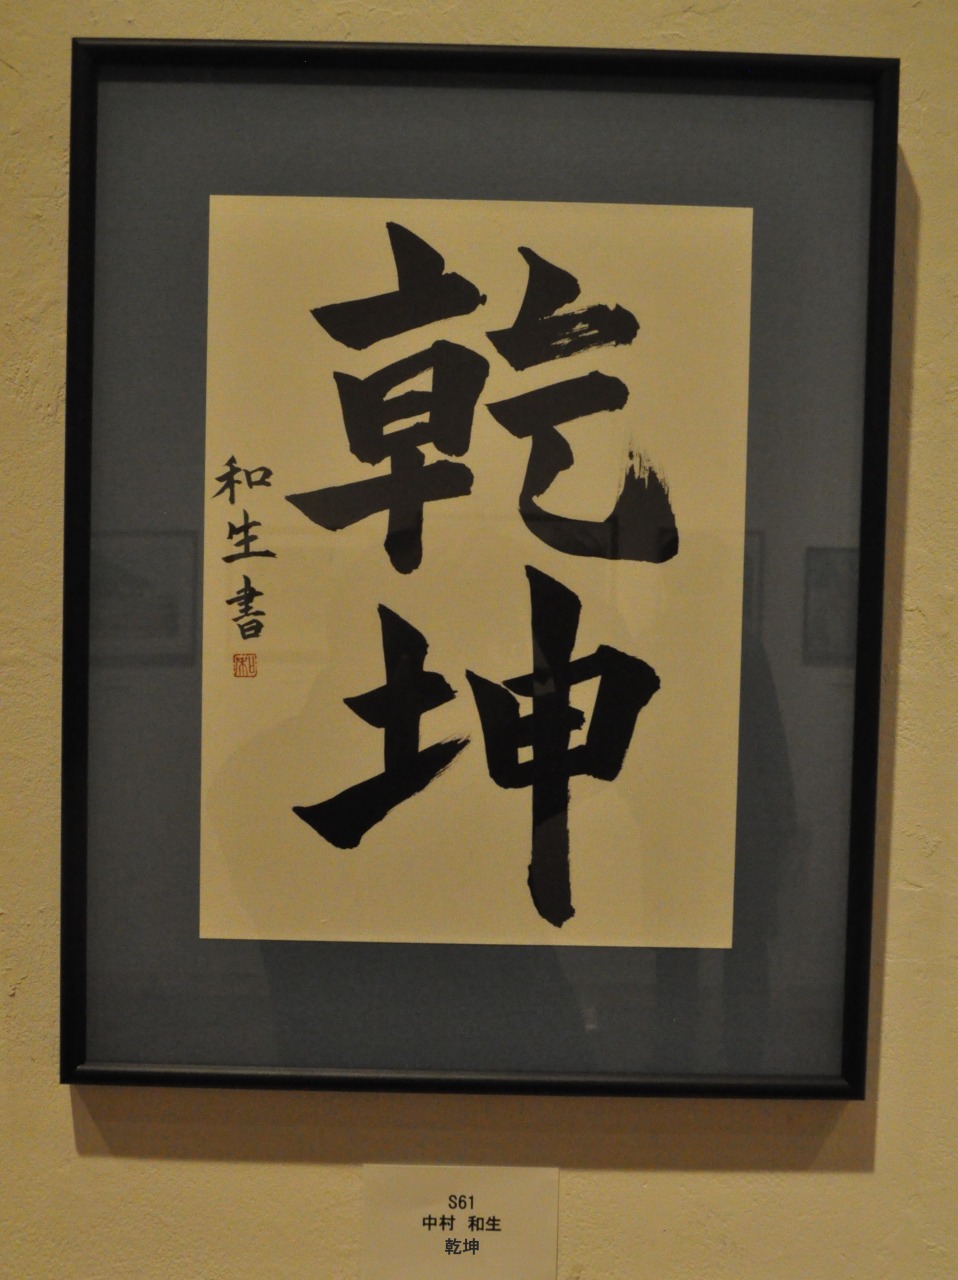 乾坤
和生書
和
S61
中村 和生
乾坤